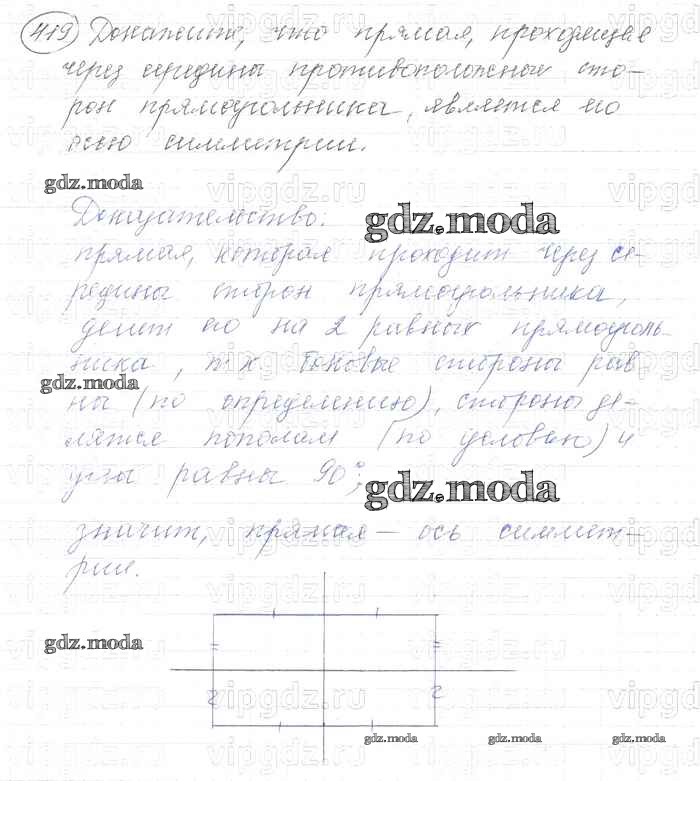 419 Докажите, что прямая, проходящая
через середины противоположных сто-
рон прямоугольника, является его
осью симметрии.
gdz.moda
Доказательство:
gdz.moda
прямая, которая проходит через се-
редины сторон прямоугольника,
делит его на 2 равных прямоуголь-
ника, т.к. боковые стороны рав-
gdz.moda
ны (по определению), стороны де-
лятся пополам (по условию) и
углы равны 90°;
gdz.moda
значит, прямая – ось симмет-
рии.
gdz.moda
gdz.moda gdz.moda gdz.moda
vipgdz.ru